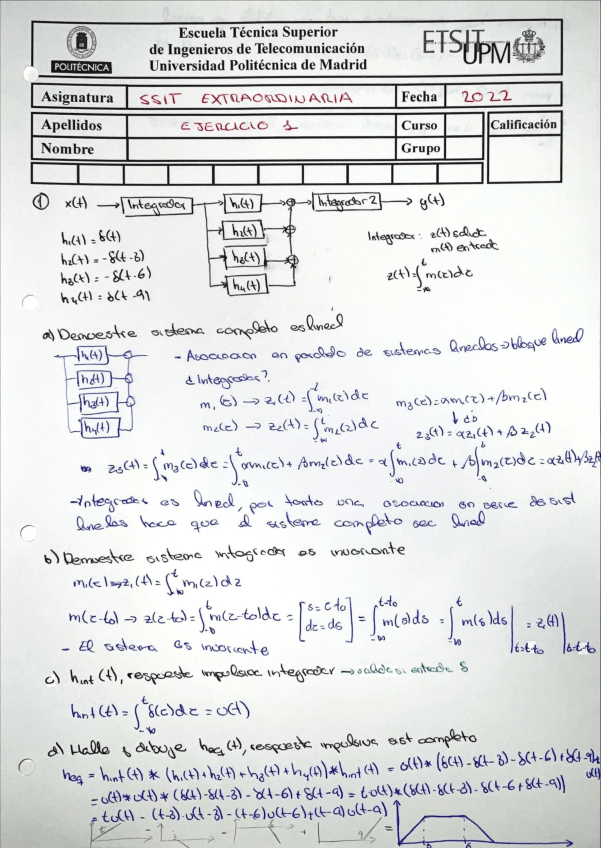 POLITÉCNICA
Escuela Técnica Superior
de Ingenieros de Telecomunicación
Universidad Politécnica de Madrid
ETSIT UPM
Asignatura SSIT EXTRAORDINARIA Fecha 2022
Apellidos EJERCICIO 1 Curso Calificación
Nombre Grupo
① x(t) → Integrador → h₁(t) ⊕ → Integrador 2 → y(t)
h₂(t) ⊕
h₃(t) ⊕
h₄(t)
h₁(t) = δ(t)
h₂(t) = -δ(t-3)
h₃(t) = -δ(t-6)
h₄(t) = δ(t-9)
Integrador: z(t) salida
m(t) entrada
z(t) = ∫_{-∞}^{t} m(τ)dτ
a) Demuestre sistema completo es lineal
h₁(t)
h₂(t)
h₃(t)
h₄(t)
- Asociacion en paralelo de sistemas lineales → bloque lineal
¿Integrador?
m₁(τ) → z₁(t) = ∫_{-∞}^{t} m₁(τ)dτ m₃(τ) = αm₁(τ) + βm₂(τ)
m₂(τ) → z₂(t) = ∫_{-∞}^{t} m₂(τ)dτ z₃(t) = αz₁(t) + βz₂(t)
z₃(t) = ∫_{-∞}^{t} m₃(τ)dτ = ∫_{-∞}^{t} αm₁(τ) + βm₂(τ)dτ = α∫_{-∞}^{t} m₁(τ)dτ + β∫_{-∞}^{t} m₂(τ)dτ = αz₁(t) + βz₂(t)
- Integrador es lineal, por tanto una asociacion en serie de sist
lineales hace que el sistema completo sea lineal
b) Demuestre sistema integrador es invariante
m₁(τ) → z₁(t) = ∫_{-∞}^{t} m₁(τ)dτ
m(τ-t₀) → z(τ-t₀) = ∫_{-∞}^{t} m(τ-t₀)dτ = [s = τ-t₀ dτ = ds] = ∫_{-∞}^{t-t₀} m(s)ds = ∫_{-∞}^{t} m(s)ds |_{t=t-t₀} = z₁(t) |_{t=t-t₀}
- El sistema es invariante
c) h_int(t), respuesta impulsiva integrador → salida si entrada δ
h_int(t) = ∫_{-∞}^{t} δ(τ)dτ = u(t)
d) Halle y dibuje h_eq(t), respuesta impulsiva sist completo
h_eq = h_int(t) * (h₁(t) + h₂(t) + h₃(t) + h₄(t)) * h_int(t) = u(t) * (δ(t) - δ(t-3) - δ(t-6) + δ(t-9)) * u(t)
= u(t) * u(t) * (δ(t) - δ(t-3) - δ(t-6) + δ(t-9)) = t·u(t) * (δ(t) - δ(t-3) - δ(t-6) + δ(t-9))
= t u(t) - (t-3)·u(t-3) - (t-6) u(t-6) + (t-9) u(t-9)